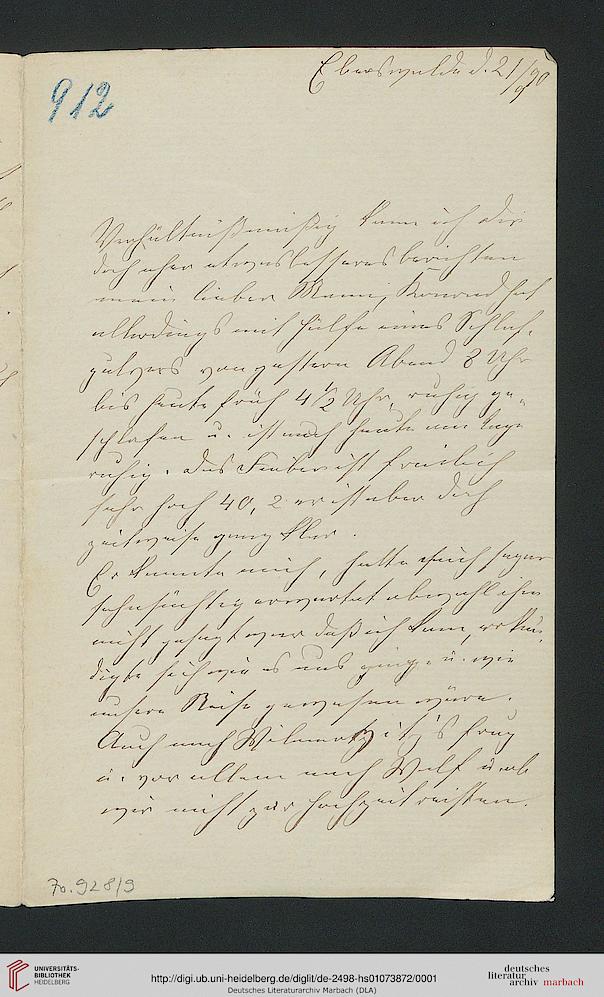 Eberswalde d. 21/9 90
912
Verhältnißmäßig kann ich dir
doch eher etwas besseres berichten
mein lieber Konrad hat
allerdings mit Hülfe eines Schlaf-
pulvers von gestern Abend 8 Uhr
bis heute früh 4 1/2 Uhr ruhig ge-
schlafen u. ist auch heute am Tage
ruhig. Das Fieber ist freilich
sehr hoch 40,2 er ist aber doch
zeitweise ganz klar.
Er kannte mich, hatte mich sogar
sehnsüchtig erwartet obwohl ihm
nicht gesagt war daß ich kam, erkun-
digte sich wie es uns ginge u. wie
unsere Reise gewesen wäre.
Auch nach frug
u. vor allem nach Wolf u. ob
wir nicht zur Hochzeit reisten.
70.928/9
UNIVERSITÄTS-
BIBLIOTHEK
HEIDELBERG
http://digi.ub.uni-heidelberg.de/diglit/de-2498-hs01073872/0001
Deutsches Literaturarchiv Marbach (DLA)
deutsches
literatur
archiv marbach